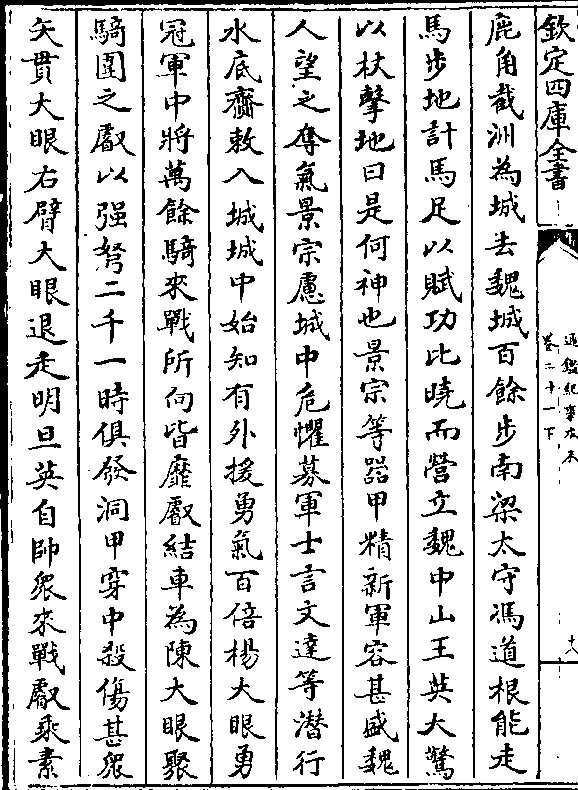 欽定四庫全書
通鑑紀事本末
卷二十一下
十八
鹿角截洲為城去魏城百餘步南梁太守馮道根能走
馬步地計馬足以賦功比曉而營立魏中山王英大驚
以杖擊地曰是何神也景宗等器甲精新軍容甚盛魏
人望之奪氣景宗慮城中危懼募軍士言文達等潛行
水底齎敕入城城中始知有外援勇氣百倍楊大眼勇
冠軍中將萬餘騎來戰所向皆靡叡結車為陳大眼聚
騎圍之叡以强弩二千一時俱發洞甲穿中殺傷甚衆
矢貫大眼右臂大眼退走明旦英自帥衆來戰叡乘素